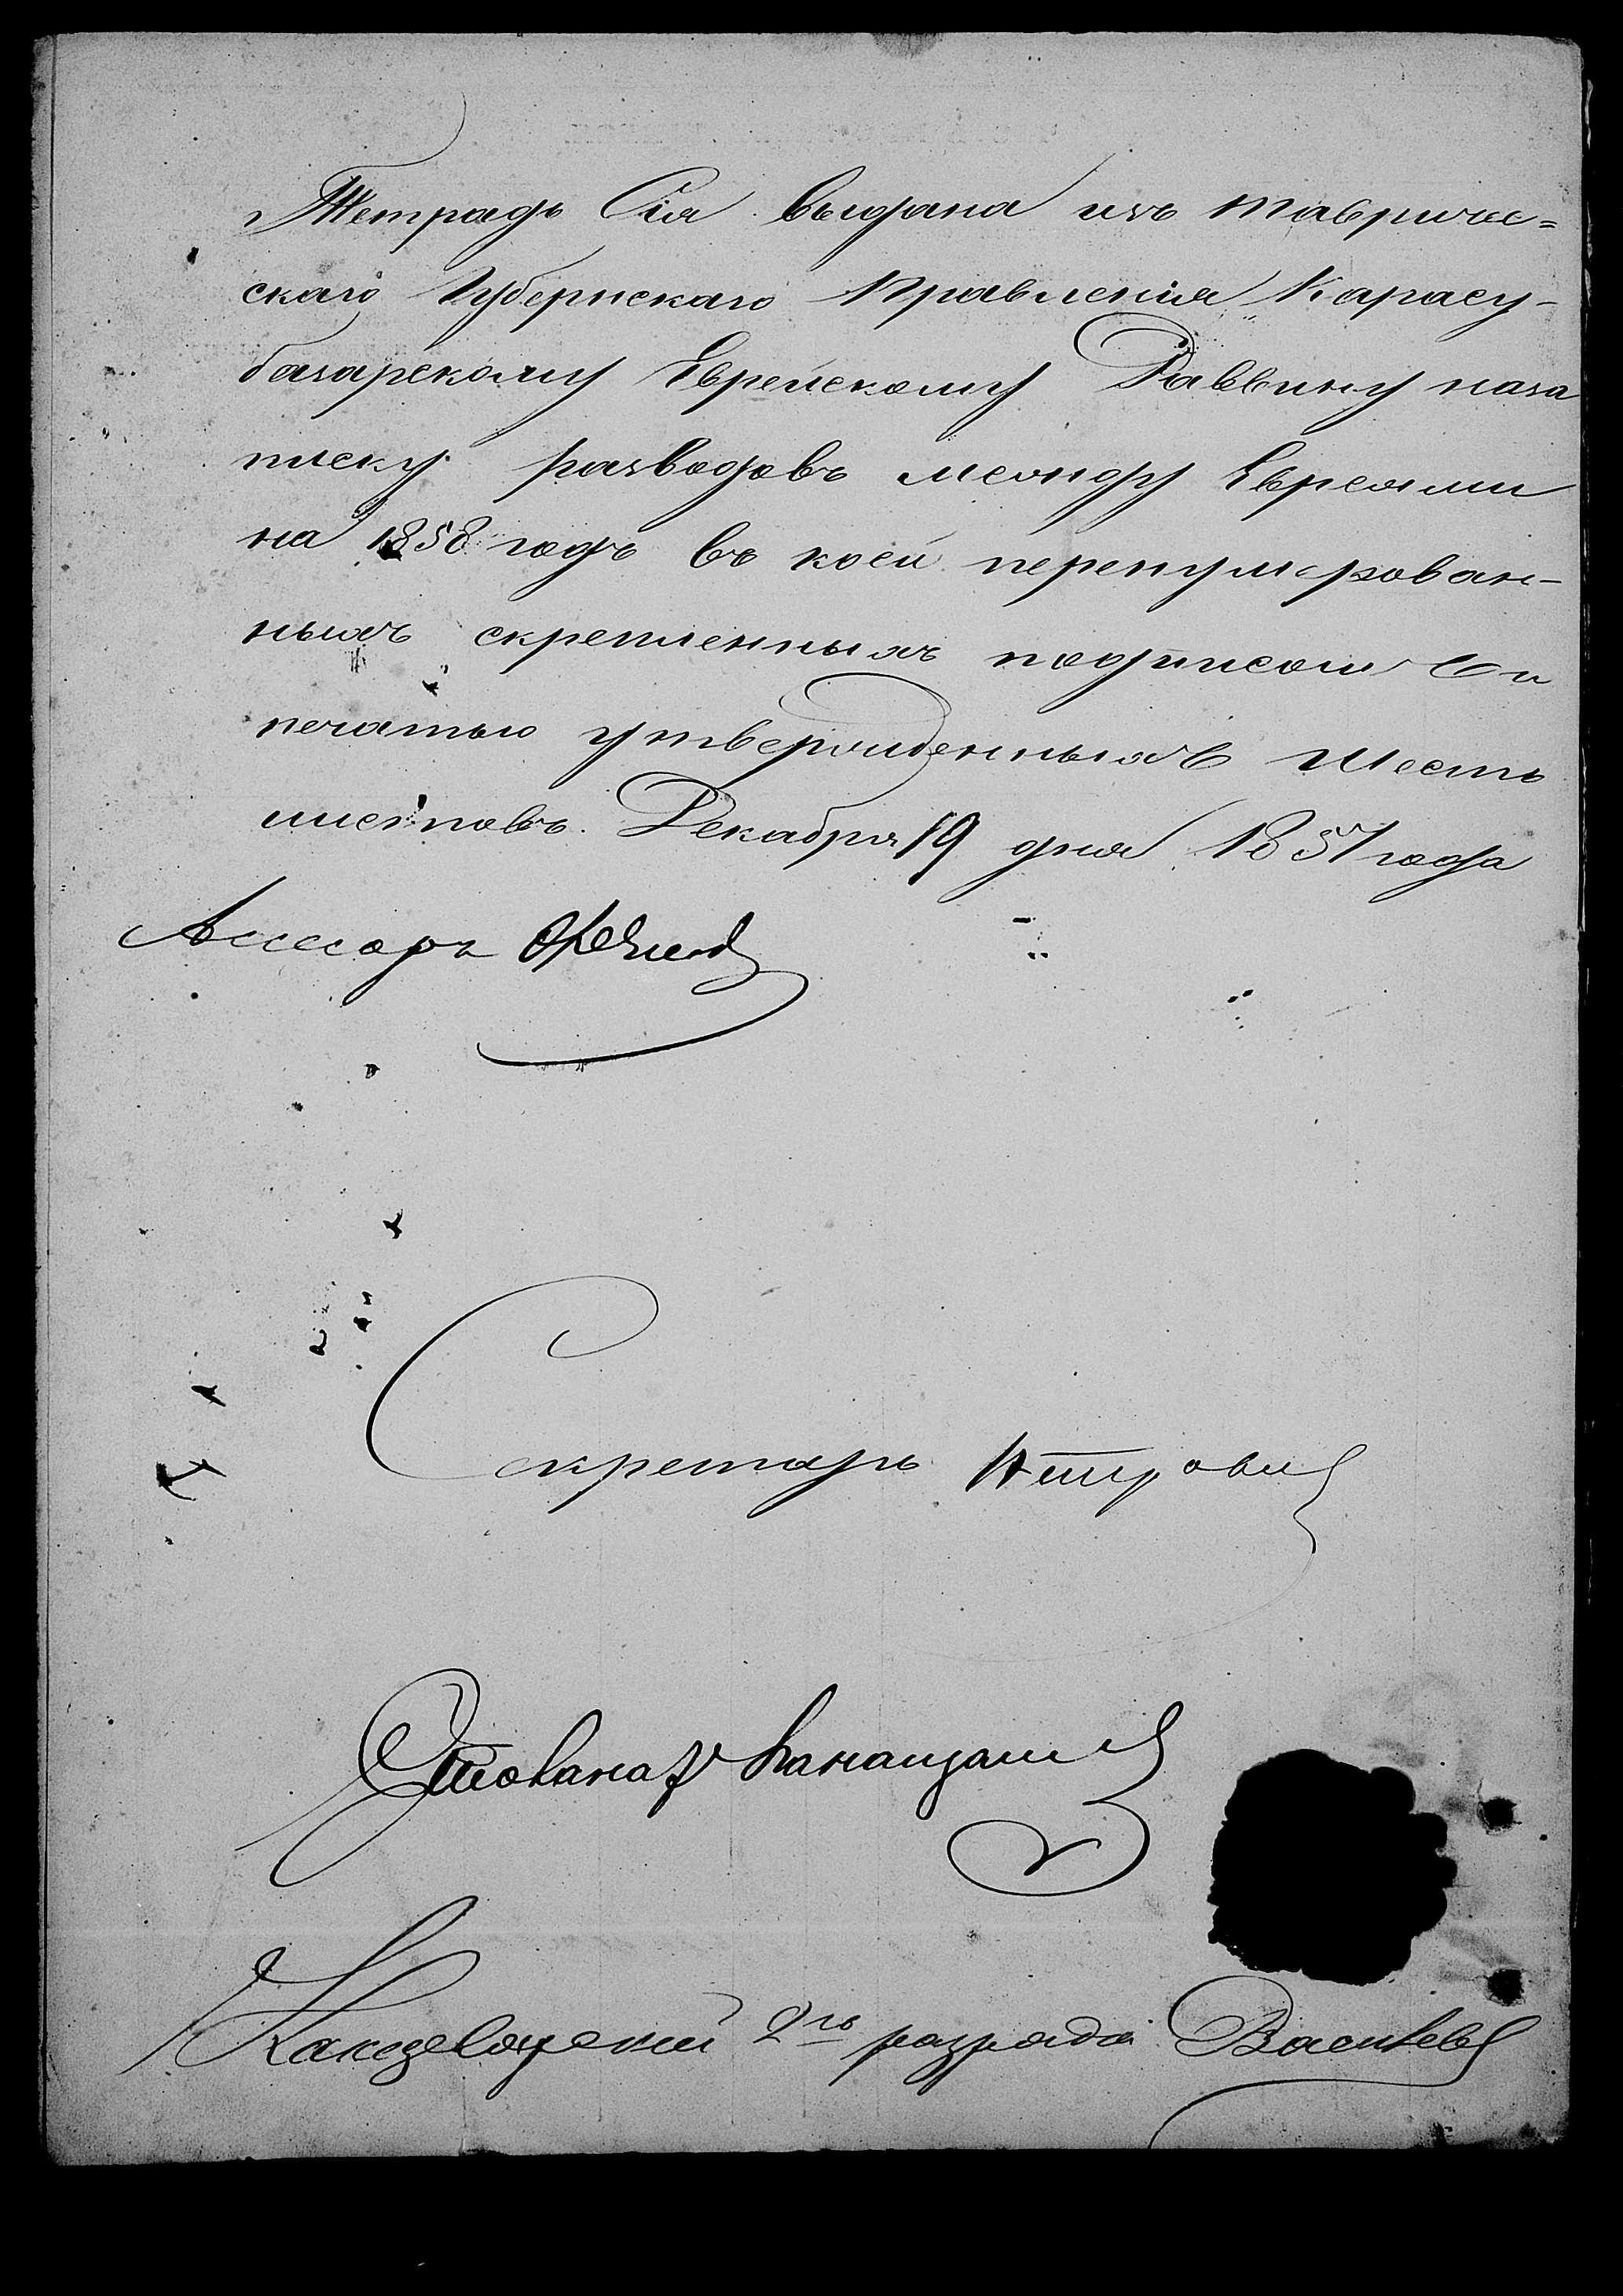 Тетрадь Сія выдана изъ Тавриче=
скаго Губернскаго Правленія Карасу-
базарскому Еврейскому Раввину наза
писку разводовъ между Евреями
на 1858 годъ въ коей перенумерован-
ныхъ скрепленныхъ подписомъ и
печатью утвержденныхъ шесть
листовъ. Декабря 19 дня 1857 года
Ассесоръ
Секретарь Петровъ
Столоначальникъ
Канцелярскій 2го разряда Васильевъ